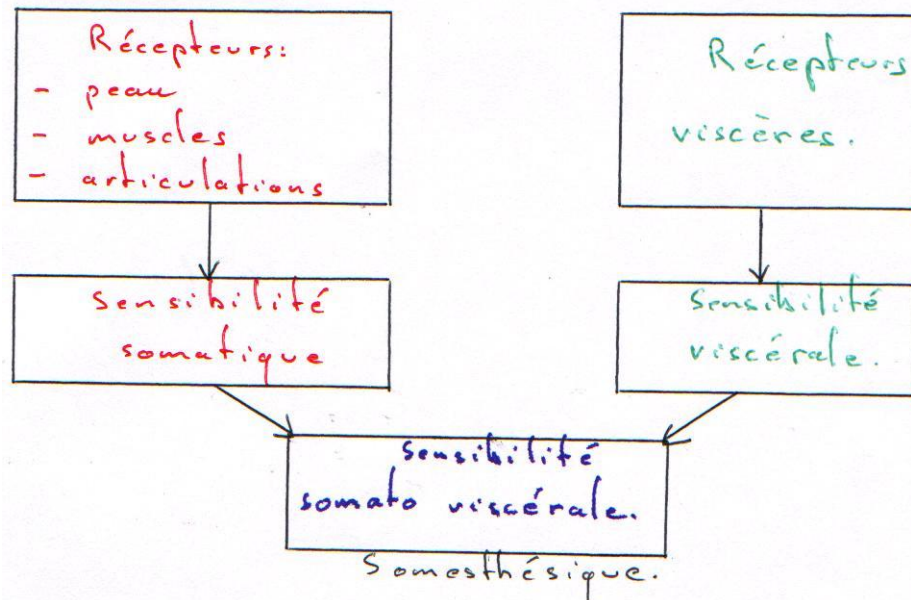 Récepteurs:
- peau
- muscles
- articulations
Récepteurs
viscères.
sensibilité
somatique
sensibilité
viscérale.
sensibilité
somato viscérale.
Somesthésique.